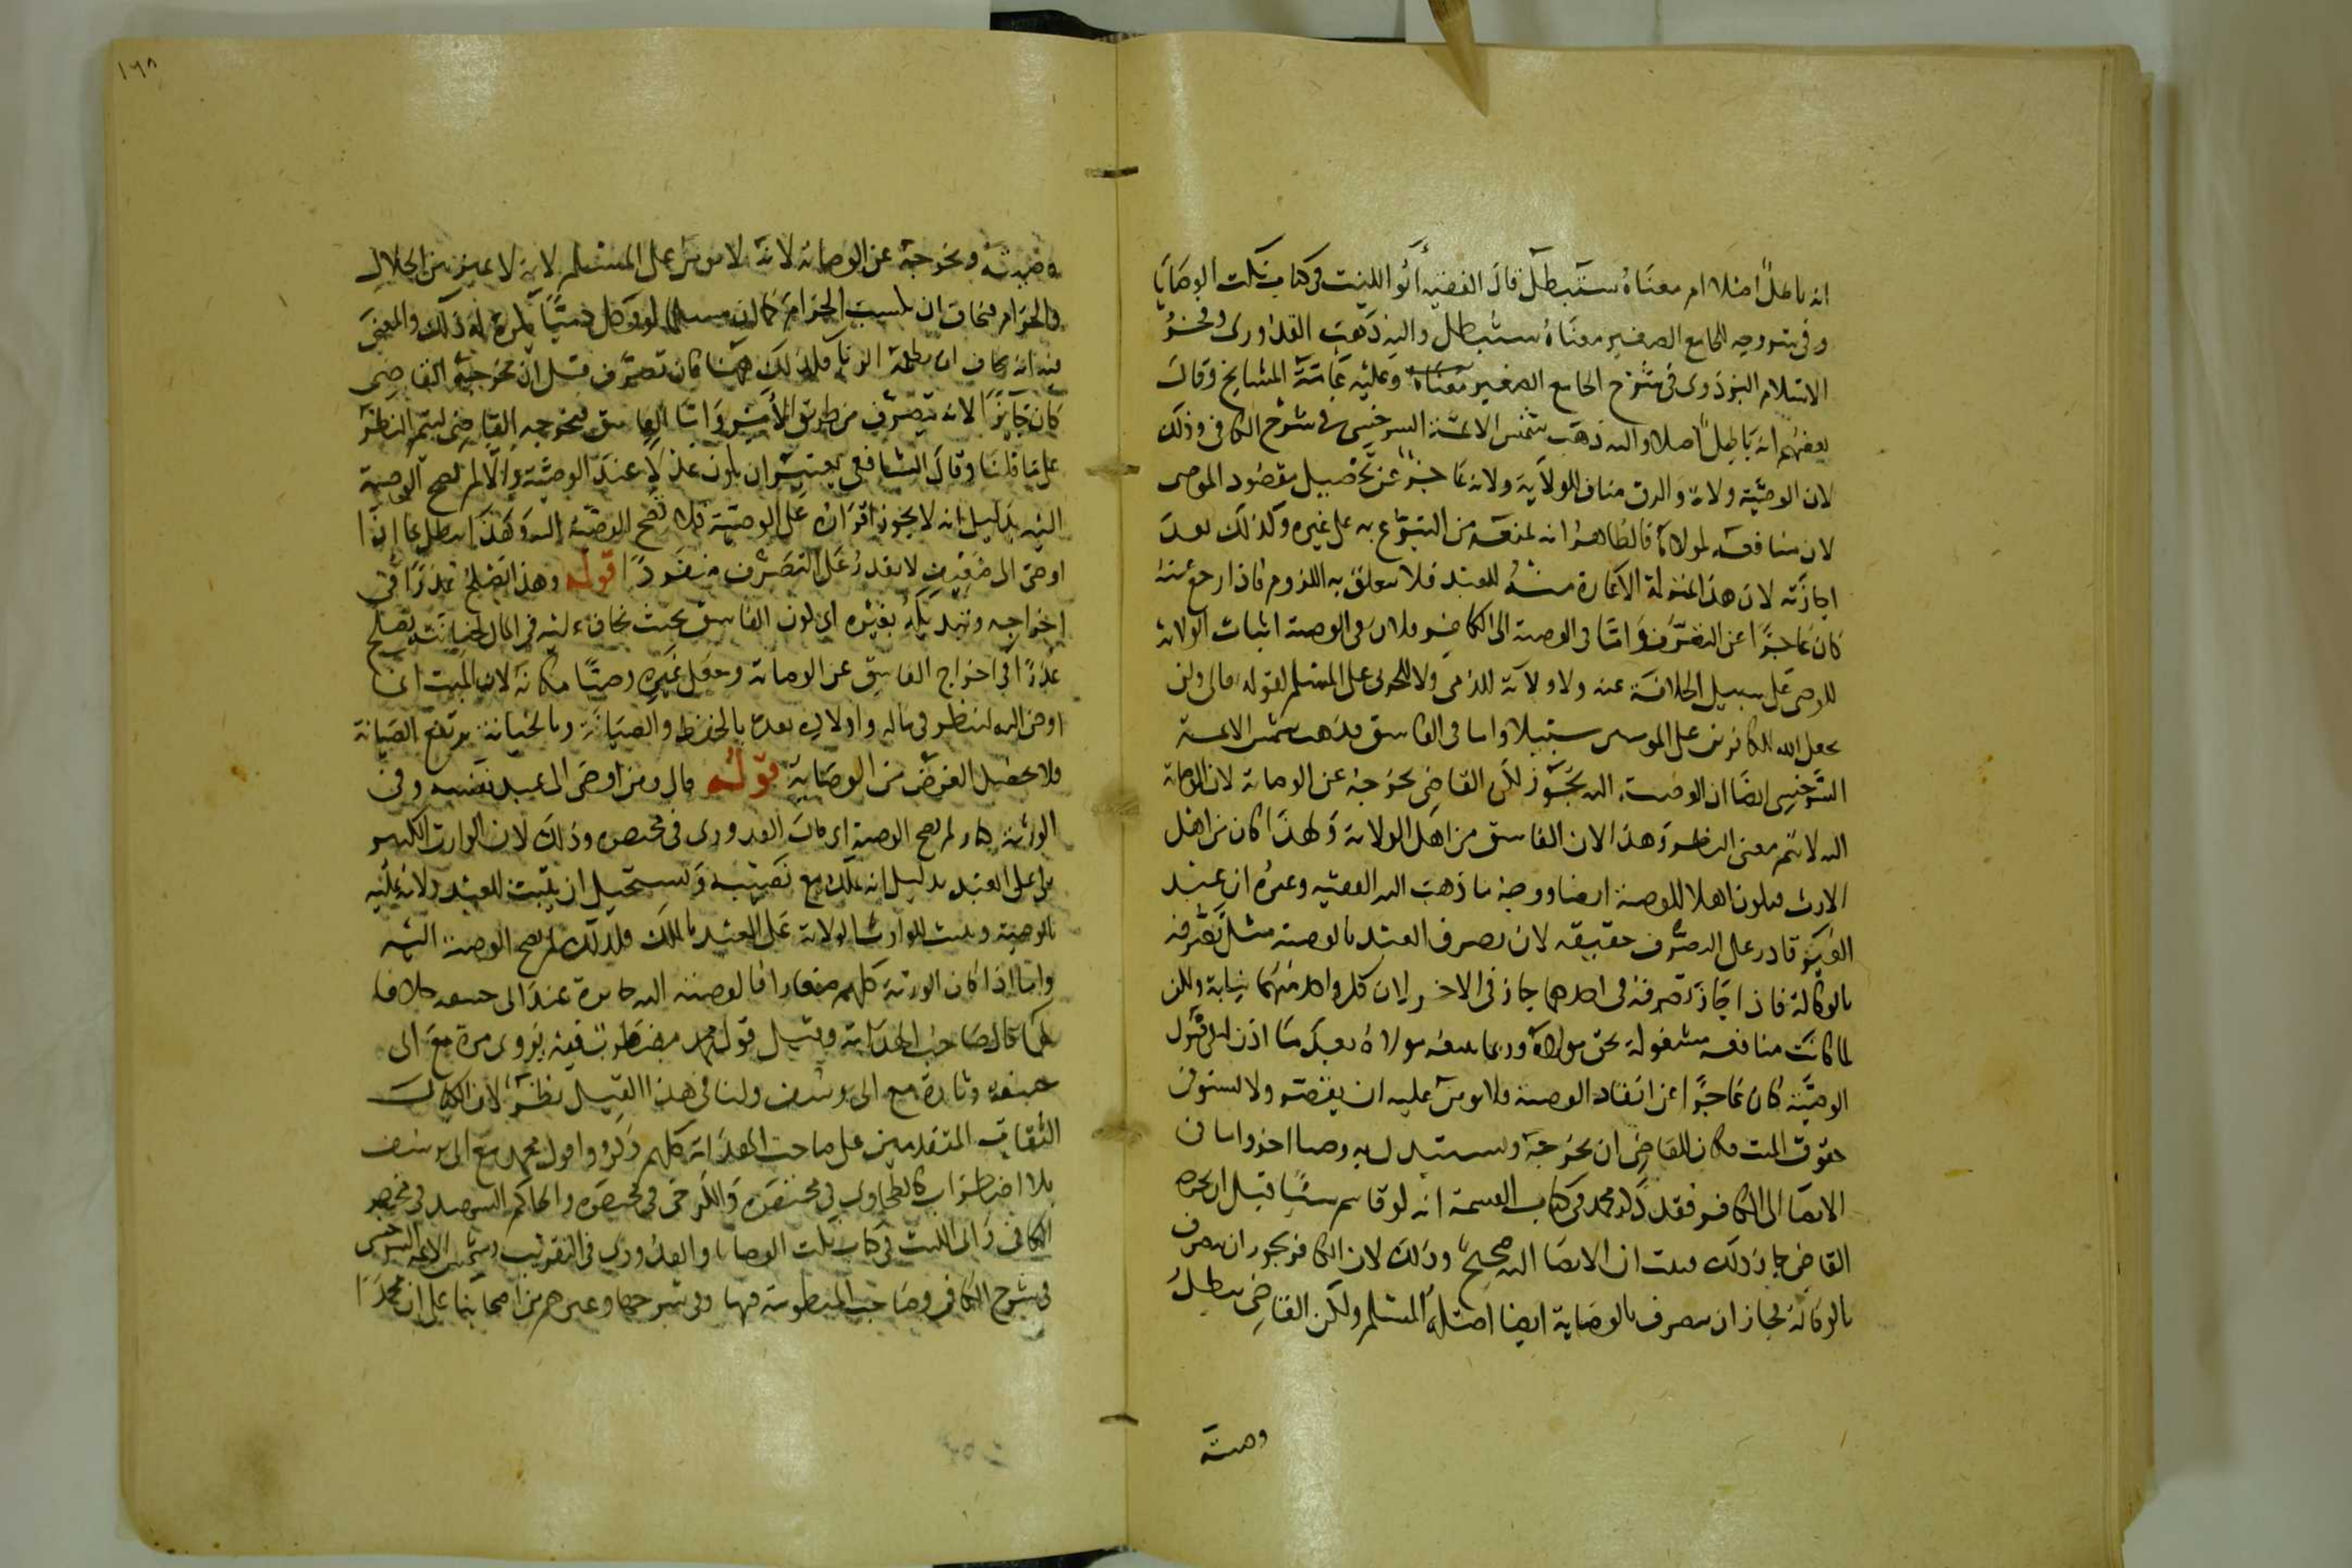 انه باطل اصلا ام معناه ستبطل قال الفقيه أبو الليث في كتاب نكت الوصايا
وفي شروحه للجامع الصغير معناه ستبطل واليه ذهب القدوري وفخر
الاسلام البزدوي في شرح الجامع الصغير معناه وعليه عامة المشايخ وقال
بعضهم انه باطل اصلا واليه ذهب شمس الائمة السرخسي في شرح الكافي وذلك
لان الوصية ولاية والرق مناف للولاية ولانه عاجز عن تحصيل مقصود الموصي
لان منافعه لمولاه فالظاهر انه يمنعه من التبرع به على غيره وكذلك بعد
اجازته لان هذا بمنزلة الاعارة منه للعبد فلا يتعلق به اللزوم فاذا رجع عنه
كان عاجزا عن التصرف واما في الوصية الى الكافر فلان في الوصية اثبات الولاية
للوصي على سبيل الخلافة عنه ولا ولاية للذمي ولا للحربي على المسلم لقوله تعالى ولن
يجعل الله للكافرين على المومنين سبيلا واما في الفاسق فذهب شمس الائمة
السرخسي ايضا ان الوصية اليه تجوز لكن القاضي يخرجه عن الوصاية لان الوصاية
اليه لا يتم معنى النظر وهذا لان الفاسق من اهل الولاية ولهذا كان من اهل
الارث فيكون اهلا للوصية ايضا ووجه ما ذهب اليه الفقيه وغيره ان عبد
الغير قادر على التصرف حقيقه لان تصرف العبد بالوصية مثل تصرفه
بالوكالة فاذا جاز تصرفه في احدهما جاز في الاخر لان كل واحد منهما نيابة ولكن
لما كانت منافعه مشغولة بحق مولاه وربما يمنعه مولاه بعد ما اذن له في قبول
الوصية كان عاجزا عن انفاد الوصية ولا يومن عليه ان يقصر ولا يستوفي
حقوق الميت فكان للقاضي ان يخرجه ويستبدل به وصيا اخر واما في
الايصا الى الكافر فقد ذكر محمد في كتاب القسمة انه لو قاسم شيئا قبل ان يخرجه
القاضي جاز ذلك فثبت ان الايصا اليه صحيح وذلك لان الكافر يجوز ان يتصرف
بالوكالة فجاز ان يتصرف بالوصاية ايضا اصله المسلم ولكن القاضي يبطل
وصيته
١٦٨
وصيته ويخرجه عن الوصاية لانه لا يومن على المسلم لانه لا يميز بين الحلال
والحرام فيخاف ان يكسب الحرام كما لو مسلما لو وكل ذميا يكره له ذلك والمعنى
فيه انه يخاف ان يطعمه الربا فلذلك ههنا فان تصرف قبل ان يخرجه القاضي
كان جائزا لانه يتصرف من طريق الامر واما الفاسق فيخرجه القاضي ليتم النظر
على ما قلنا وقال الشافعي يعتبر ان يكون عدلا عند الوصية والا لم تصح الوصية
اليه بدليل انه لا يجوز اقراره على الوصية فلا تصح الوصية اليه وهذا يبطل بما اذا
اوصى الى ضعيف لا يقدر على التصرف منفردا قوله وهذا يصلح عذرا في
اخراجه وتبديله بغيره اي كون الفاسق بحيث يخاف عليه في المال لخيانته يصلح
عذرا في اخراج الفاسق عن الوصاية وجعل غيره وصيا مكانه لان الميت انما
اوصى اليه لينظر في ماله واولاده بعده بالحفظ والصيانة وبالخيانة يرتفع الصيانة
فلا يحصل الغرض من الوصاية قوله قال ومن اوصى الى عبد نفسه وفي
الورثة كبار لم تصح الوصية اي قال القدوري في مختصره وذلك لان الوارث الكبير
يلي على العبد بدليل انه يملك بيع نصيبه ويستحيل ان يثبت للعبد ولاية عليه
بالوصية ويثبت للوارث الولاية على العبد بالملك فلذلك لم تصح الوصية اليه
واما اذا كان الورثة كلهم صغارا فالوصية اليه جائزة عند ابي حنيفة خلافا
لهما قال صاحب الهداية وقيل قول محمد مضطرب فيه يروى مرة مع ابي
حنيفة وتارة مع ابي يوسف ولنا في هذا القيل نظر لان الكبار
الثقات المتقدمين على صاحب الهداية كلهم ذكروا قول محمد مع ابي يوسف
بلا اضطراب كالطحاوي في مختصره والكرخي في مختصره والحاكم الشهيد في مختصر
الكافي وابي الليث في كتاب نكت الوصايا والقدوري في التقريب وشمس الائمة السرخسي
في شرح الكافي وصاحب المنظومة فيها وفي شرحها وغيرهم من اصحابنا على ان محمدا